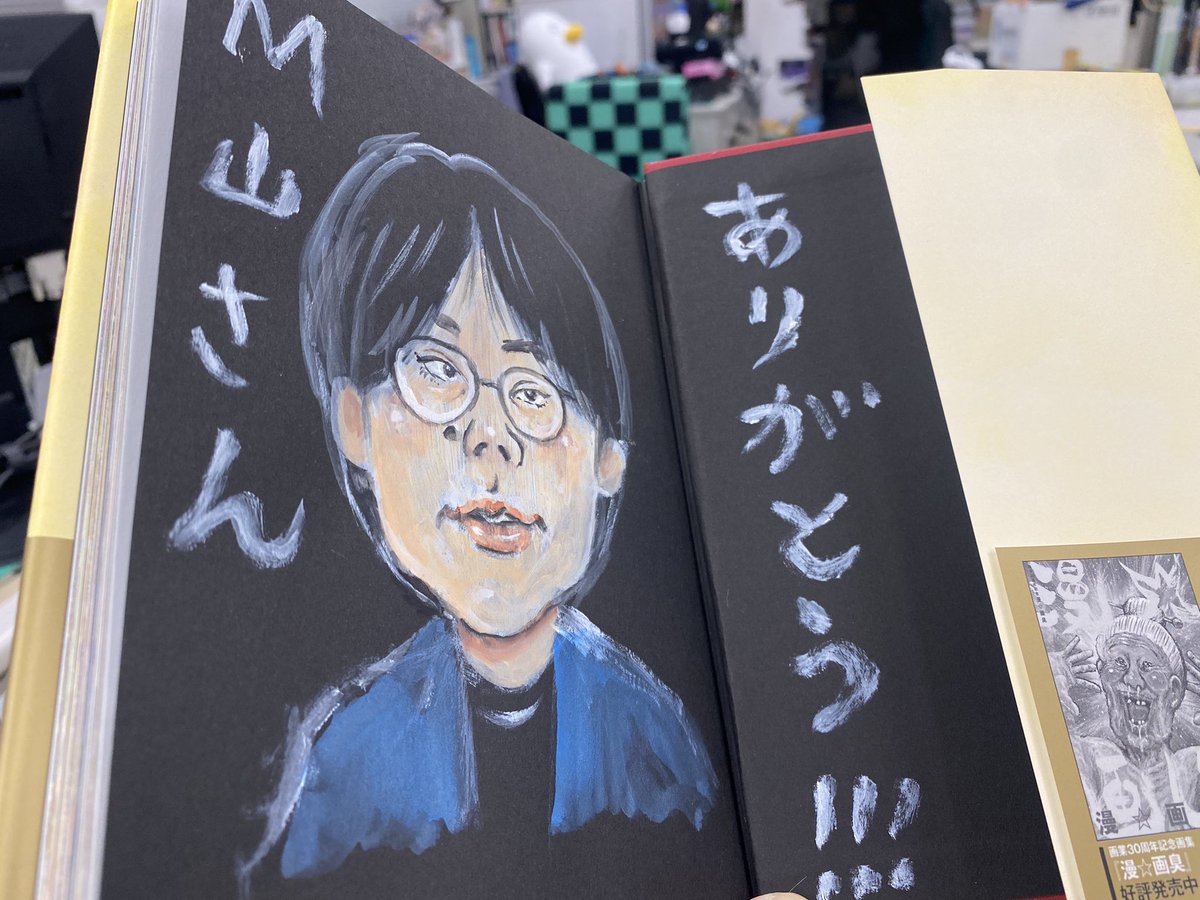 M山さん
ありがとう!!!
漫☆画
画業30周年記念画集
『漫☆画臭』
好評発売中